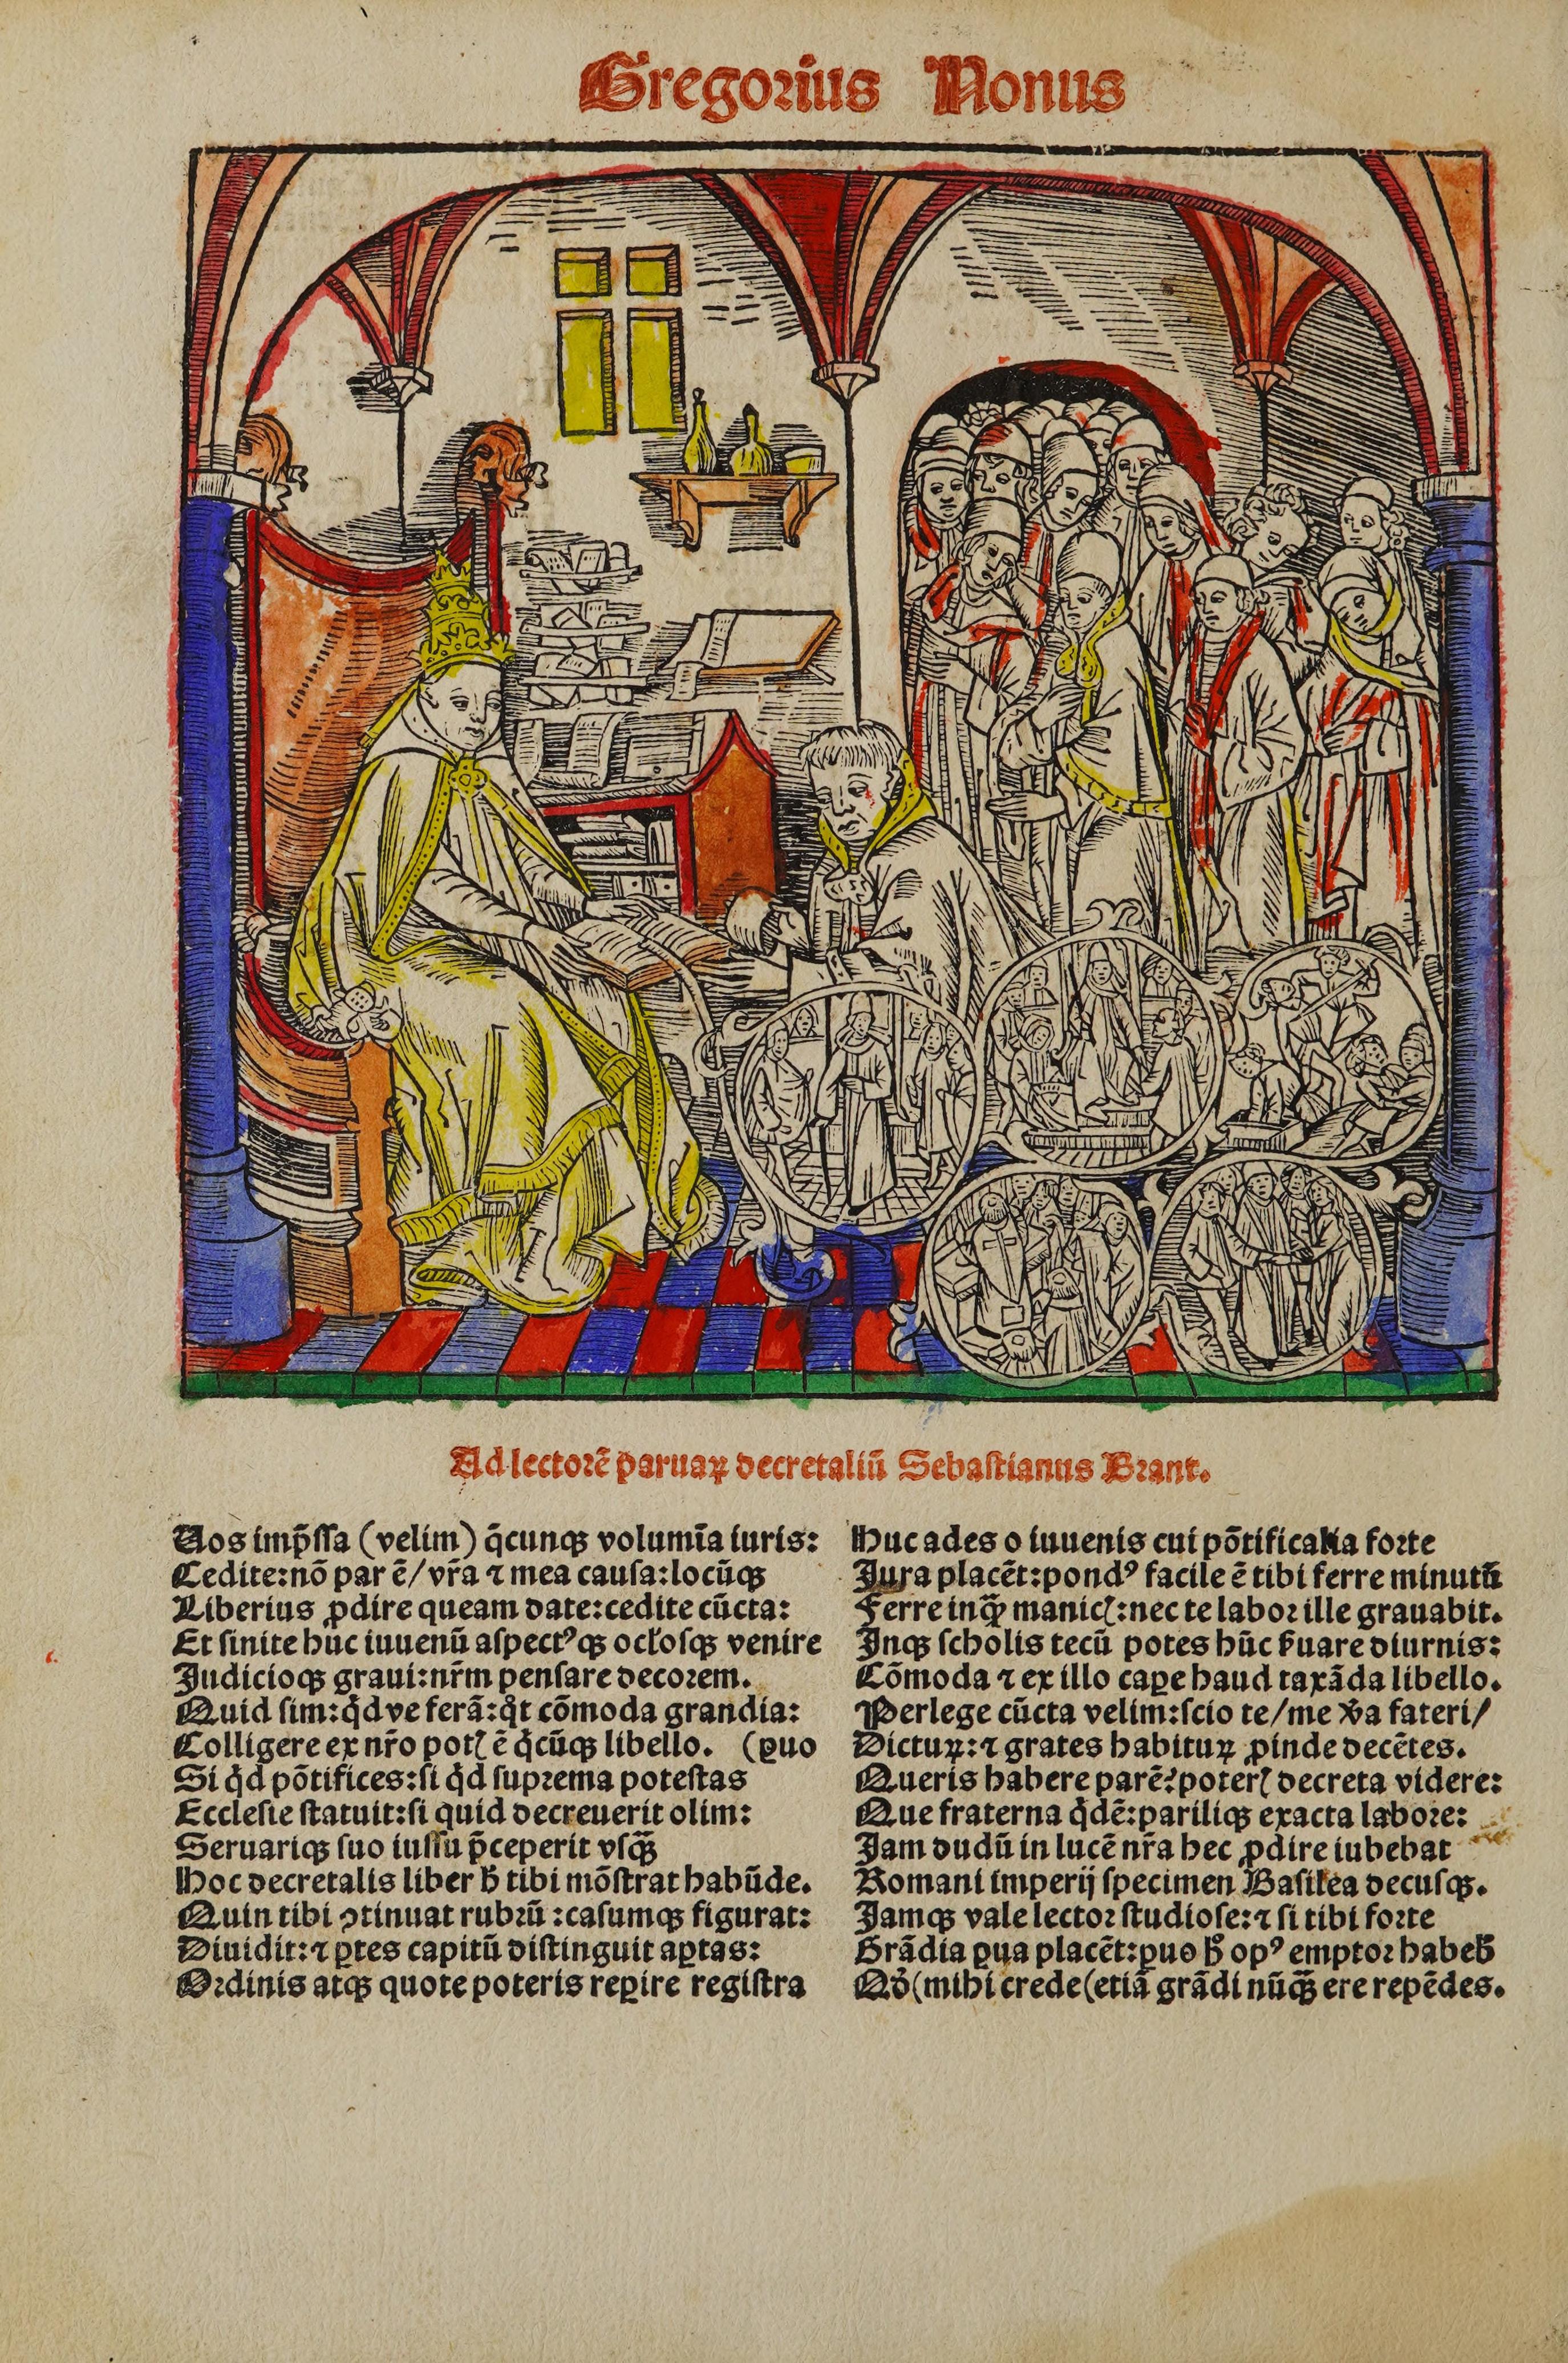 Gregorius Nonus
Ad lectorē paruaꝝ decretaliū Sebastianus Brant.
Uos imp̄ssa (velim) q̄cunqꝫ volumīa iuris:
Cedite: nō par ē/ vr̄a ⁊ mea causa: locūqꝫ
Liberius ꝓdire queam date: cedite cūcta:
Et sinite hūc iuuenū aspectꝰqꝫ ocl̓osqꝫ venire
Judicioqꝫ graui: nr̄m pensare decorem.
Quid sim: qd̓ ve ferā: qͣt cōmoda grandia:
Colligere ex nr̄o potꝭ ē qͥcūqꝫ libello. (ꝑuo
Si qd̓ pōtifices: si qd̓ suprema potestas
Ecclesie statuit: si quid decreuerit olim:
Seruariqꝫ suo iussu p̄ceperit vsqꝫ̄
Hoc decretalis liber h̓ tibi mōstrat habūde.
Quin tibi ꝯtinuat rubrū : casumqꝫ figurat:
Diuidit: ⁊ ꝑtes capitū distinguit aꝑtas:
Ordinis atqꝫ quote poteris reꝑire registra
Huc ades o iuuenis cui pōtificalia forte
Jura placēt: pondꝰ facile ē tibi ferre minutū
Ferre inqꝫ̄ manicꝭ: nec te labor ille grauabit.
Inqꝫ scholis tecū potes hūc ẜuare diurnis:
Cōmoda ⁊ ex illo caꝑe haud taxāda libello.
Perlege cūcta velim: scio te/ me v̓a fateri/
Dictuꝝ: ⁊ grates habituꝝ ꝓinde decētes.
Queris habere parē? poterꝭ decreta videre:
Que fraterna qd̓ē: pariliqꝫ exacta labore:
Jam dudū in lucē nr̄a hec ꝓdire iubebat
Romani imperij specimen Basilea decusqꝫ.
Jamqꝫ vale lector studiose: ⁊ si tibi forte
Grādia ꝑua placēt: ꝑuo h̊ opꝰ emptor habeb̓
Qō (mihi crede (etiā grādi nūqꝫ̄ ere repēdes.